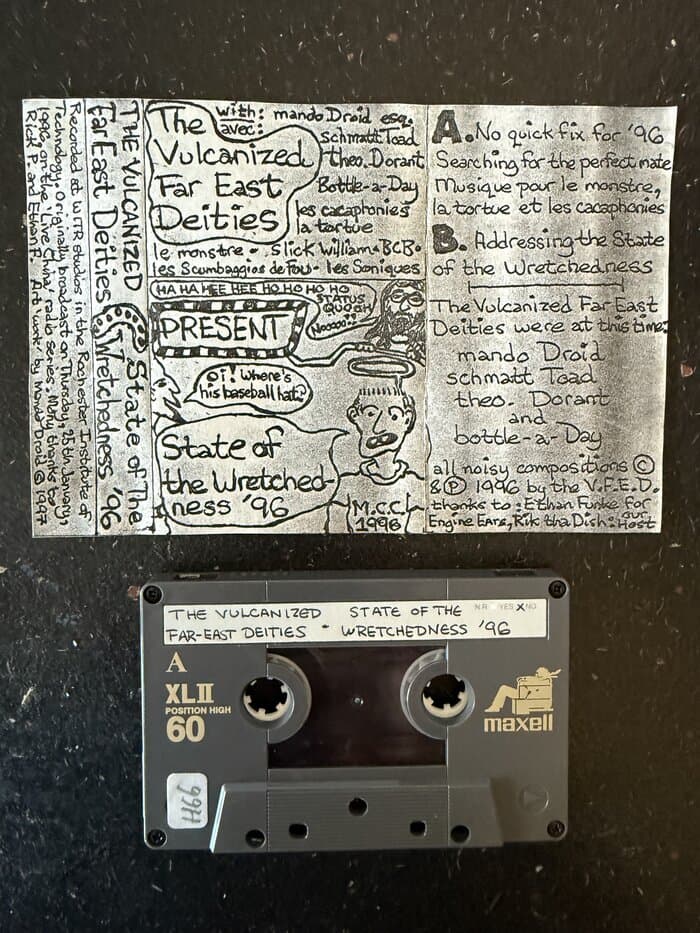 Recorded at WITR studios in the Rochester Institute of
Technology. Originally broadcast on Thursday, 25th January,
1996 on the 'Live China' radio series. Many thanks to
Rick P. and Ethan F. Art work by Mando Droid © 1997
THE VULCANIZED
Far East Deities
State of The
Wretchedness '96
The
Vulcanized
Far East
Deities
with: mando Droid esq.
avec:
Schmatt Toad
theo. Dorant
Bottle-a-Day
les cacaphonies
la tortue
le monstre • Slick William • BCB •
les Scumbaggios de Fou • les Soniques
HA HA HEE HEE HO HO HO HO
STATUS
QUOOH
Noooooo
PRESENT
Oi! Where's
his baseball hat?
State of
the Wretched-
ness '96
M.C.C.
1996
A. No quick fix for '96
Searching for the perfect mate
Musique pour le monstre,
la tortue et les cacaphonies
B. Addressing the State
of the Wretchedness
The Vulcanized Far East
Deities were at this time:
mando Droid
schmatt Toad
theo. Dorant
and
bottle-a-Day
all noisy compositions ©
& ℗ 1996 by the V.F.E.D.
thanks to: Ethan Funke for
Engine Ears, Rik tha Dish: our Host
THE VULCANIZED STATE OF THE
FAR-EAST DEITIES - WRETCHEDNESS '96
N.R. YES X NO
A
XLII
POSITION HIGH
60
maxell
H66